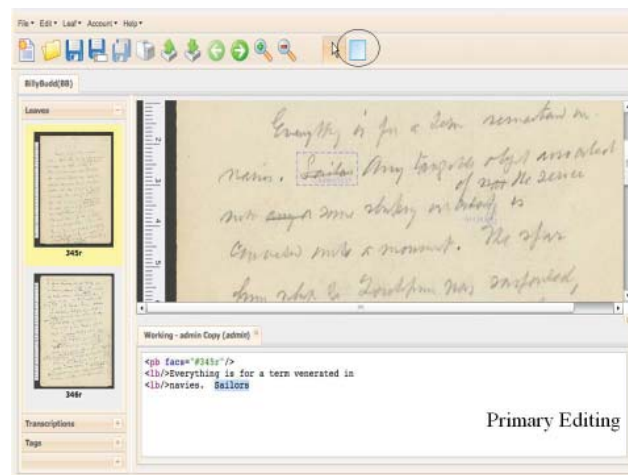 File Edit Leaf Account Help
BillyBudd(BB)
Leaves
345r
346r
Transcriptions
Tags
Everything is for a term remarked in
navies. Sailors Any tangible object associated
of not the service
converted into a monument. The spar
from which the Foretopman was suspended,
Working - admin Copy (admin)
<pb facs="#345r"/>
<lb/>Everything is for a term venerated in
<lb/>navies. Sailors
Primary Editing